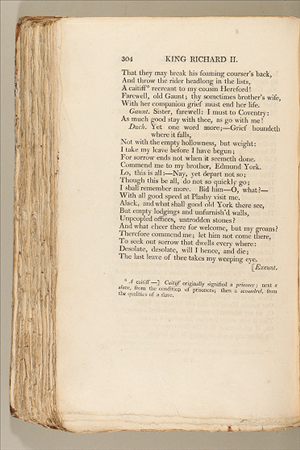 304 KING RICHARD II.
That they may break his foaming courser's back,
And throw the rider headlong in the lists,
A caitiff⁸ recreant to my cousin Hereford!
Farewell, old Gaunt; thy sometimes brother's wife,
With her companion grief must end her life.
Gaunt. Sister, farewell: I must to Coventry:
As much good stay with thee, as go with me!
Duch. Yet one word more;—Grief boundeth
where it falls,
Not with the empty hollowness, but weight:
I take my leave before I have begun;
For sorrow ends not when it seemeth done.
Commend me to my brother, Edmund York.
Lo, this is all:—Nay, yet depart not so;
Though this be all, do not so quickly go;
I shall remember more. Bid him—O, what?—
With all good speed at Plashy visit me.
Alack, and what shall good old York there see,
But empty lodgings and unfurnish'd walls,
Unpeopled offices, untrodden stones?
And what cheer there for welcome, but my groans?
Therefore commend me; let him not come there,
To seek out sorrow that dwells every where:
Desolate, desolate, will I hence, and die;
The last leave of thee takes my weeping eye.
[Exeunt.
⁸ A caitiff—] Caitiff originally signified a prisoner; next a
slave, from the condition of prisoners; then a scoundrel, from
the qualities of a slave.